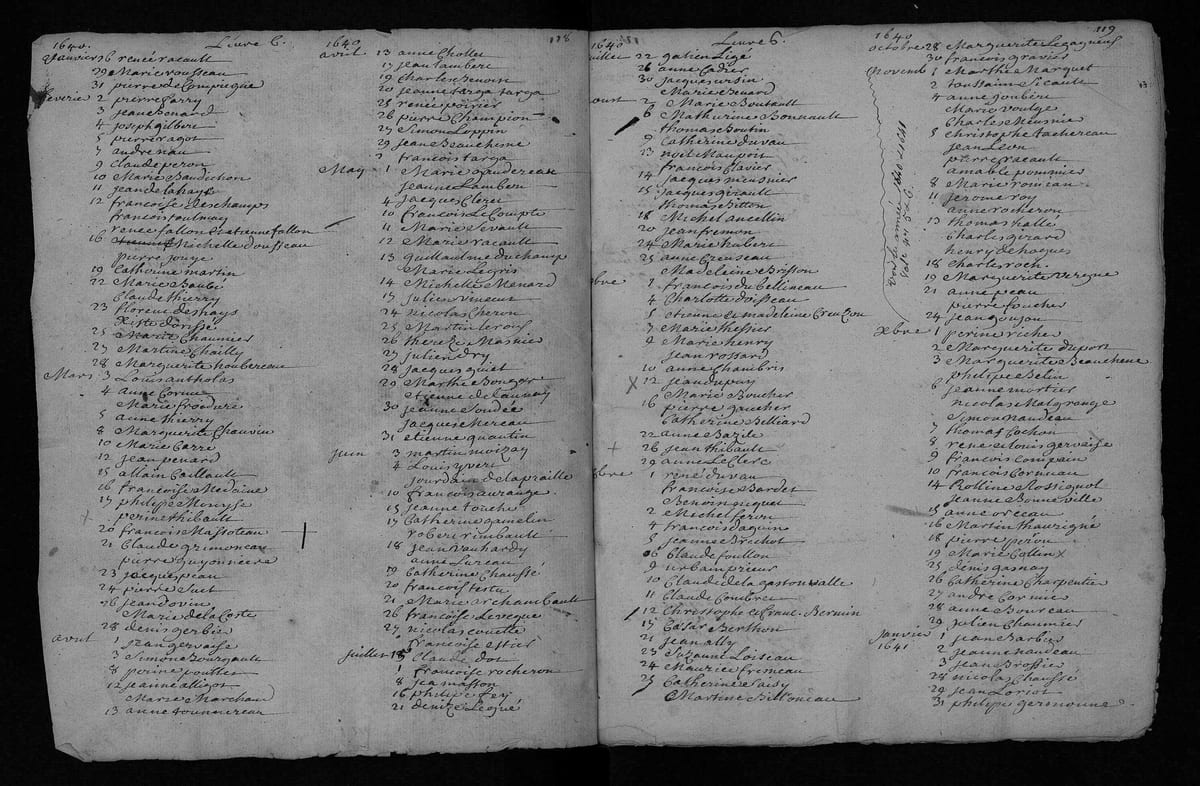 1640. Livre 6.
Janvier 26 renée racault
29 Marie rousseau
31 pierre de Compiegne
feverie 2 pierre Carry
3 jean benard
4 joseph gilbert
5 pierre ragot
7 andre nau
9 Claude peron
10 Marie Baudichon
11 jean de la haye
12 francoise Deschamps
francois poulmay
renée fallon et atienne fallon
16 Michelle doisseau
pierre jouye
19 Catherine martin
22 Marie Baubé
Claude thierry
23 florent deshays
25 Marie Chaumier
27 Martine Chailly
28 Marguerite houbereau
Mars 3 Louis antholas
4 anne Cormier
5 anne thierry
8 Marguerite Chauvin
10 Marie Carré
12 jean penard
15 allain Caillault
16 francoise Medaine
17 philipe Mouysse
perine thibault
20 francois Massoteau
21 Claude grimoneau
pierre guyonniere
23 jacque peau
24 pierre Suet
26 jean dovin
Marie de la Coste
28 denis gerbier
avril 1 jean gervaise
3 Simone Bourgault
8 perine pouttier
12 jeanne alligot
Marie Marchand
13 anne tournereau
1640 118
avril 13 anne Chollet
17 jean lambert
19 Charles Benoist
20 jeanne targa targa
25 renée poirier
26 pierre Champion
27 Simon Loppin
29 jean Beauchesne
francois targa
May 1 Marie gaudereau
jeanne Lambert
4 jacques Cleret
10 francois Le Compte
11 Marie Sevault
12 Marie racault
13 guillaume duchamp
Marie Legris
14 Michelle Menard
17 julien Vineur
24 nicolas Cheron
25 Martin leroy
26 therese Masnier
27 julien dry
28 jacques quiet
29 Marthe Bongar
etienne de launay
30 jeanne Soudée
jacques Mereau
31 etienne quantin
juin 3 martin moizay
4 Louis yvert
jourdain de la praille
10 francois aurange
15 jeanne touche
17 Catherine gamelin
robert rimbault
18 jean Vauhardy
anne Lureau
19 Catherine Chaussé
20 francois testu
21 Marie archambault
26 francoise Leveque
27 nicolas couette
francoise estier
juillet 1 Claude dot
1 francoise rocheron
8 jea masson
16 philipe fey
21 denize Legué
1640 Livre 6.
juillet 22 gatien Ligé
26 anne Cadier
30 jacques ursin
Marie benard
aoust 2 Marie Boutault
6 Matherine Bonnault
thomas boutin
9 Catherine duvau
13 noel Maupoit
francois Clavier
14 jacques meusnier
15 jacques girault
thomas bitton
18 Michel ancellin
20 jean fremon
24 Marie hubert
25 anne Creuseau
Madeleine Brisson
7bre 1 francois du bellineau
4 Charlotte doisseau
5 etienne et madeleine Creuzon
7 Marie hessier
9 Marie henry
jean rossard
10 anne Chambris
12 jean dupuy
Marie Boucher
16 pierre goucher
Catherine Belliard
22 anne Bazile
26 jean thibault
29 anne Le Clerc
8bre 1 rené duvau
francoise Bardet
Benoist piquet
2 Michel feron
4 francois daquin
5 jeanne Brichet
06 Claude foullon
9 urbain prieur
10 Claude de la gastouvalle
11 Claude Combret
12 Christophe et franc. Bernin
17 Cesar Berthon
21 jean ally
23 Suzanne Loiseau
24 Maurice fremeau
25 Catherine Saisy
Martine Bittonneau
1640 119
octobre 28 Marguerite Legagneux
30 francois gravier
Novemb 1 Marthe Marquet
2 toussaint Sicault
4 anne joubert
Marie voulge
Charles Meusnier
5 christophe tachereau
jean Leon
pierre racault
amable pommier
8 Marie roineau
11 jerome roy
anne rocheron
13 thomas hallé
Charles girard
henry de hogues
18 Charles roch.
19 Marguerite Veregue
21 anne peau
pierre foucher
24 jean goujon
Xbre 1 perine richer
2 Marguerite duport
3 Marguerite Beauchene
philipe Belin
6 jeanne mortier
nicolas Malgrange
Simon naudeau
7 thomas Cochon
8 rene et louis gervaise
9 francois Compain
10 francois Cormeau
14 Rolline Rossignol
jeanne Bonneville
15 anne orceau
16 Martin thaurigné
18 pierre peron
19 Marie Collin x
25 denis gasnay
26 Catherine Charpentier
27 andré Cormié
28 anne Boureau
29 julien Chaumier
Janvier 1641 1 jean Barbier
2 jeanne naudeau
3 jean Brossier
28 nicolas Chaussé
29 jean Loriot
31 philipe germonne.